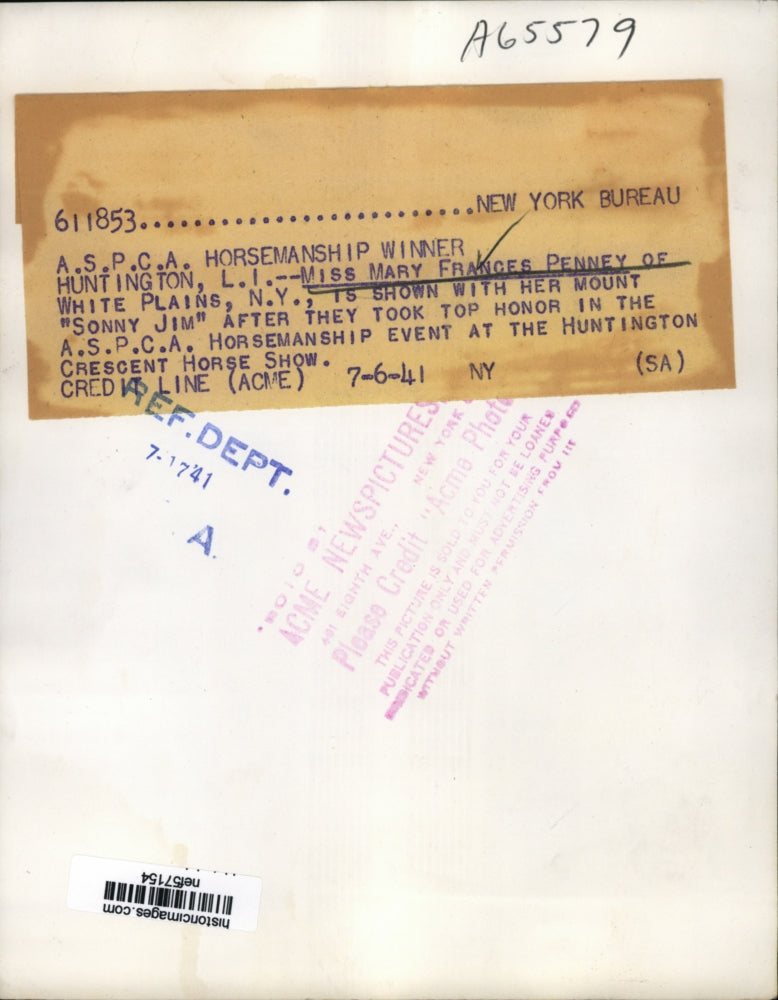 A65579
611853...........................NEW YORK BUREAU
A.S.P.C.A. HORSEMANSHIP WINNER
HUNTINGTON, L.I.--MISS MARY FRANCES PENNEY OF
WHITE PLAINS, N.Y., IS SHOWN WITH HER MOUNT
"SONNY JIM" AFTER THEY TOOK TOP HONOR IN THE
A.S.P.C.A. HORSEMANSHIP EVENT AT THE HUNTINGTON
CRESCENT HORSE SHOW.
CREDIT LINE (ACME) 7-6-41 NY (SA)
REF. DEPT.
7-1741
A.
ACME NEWSPICTURES
461 EIGHTH AVE., NEW YORK
Please Credit "Acme Photo
THIS PICTURE IS SOLD TO YOU FOR YOUR
PUBLICATION ONLY AND MUST NOT BE LOANED
SYNDICATED OR USED FOR ADVERTISING PURPOSES
WITHOUT WRITTEN PERMISSION FROM
historicimages.com
nef57154